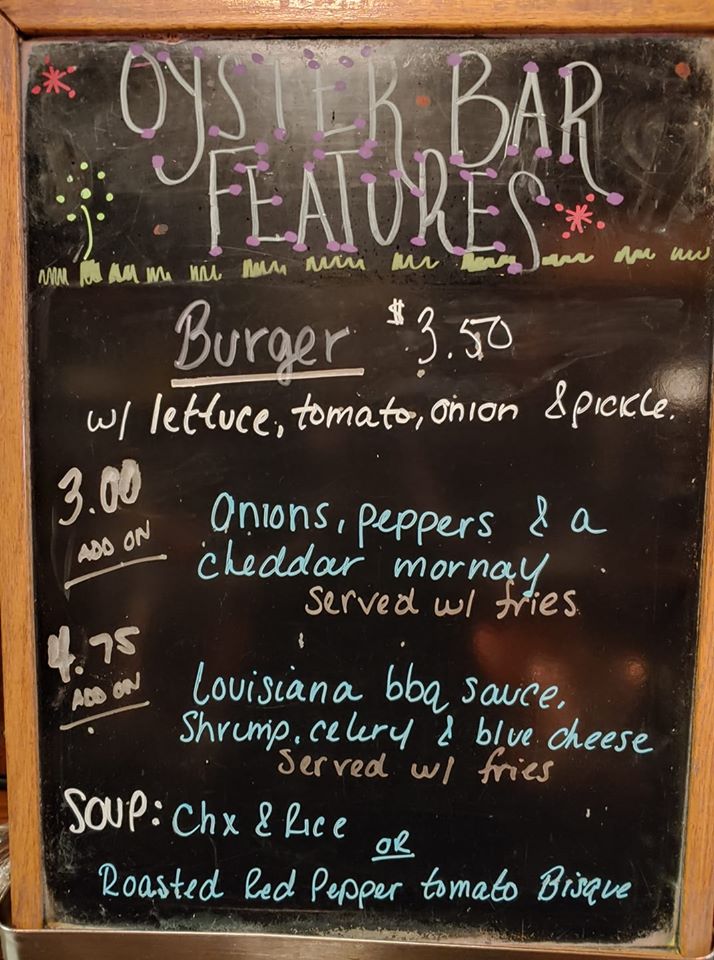 OYSTER BAR
FEATURES
Burger $3.50
w/ lettuce, tomato, onion & pickle.
3.00
ADD ON
Onions, peppers & a
cheddar mornay
served w/ fries
4.75
ADD ON
Louisiana bbq sauce,
Shrimp, celery & blue cheese
served w/ fries
SOUP: Chx & Rice
OR
Roasted Red Pepper tomato Bisque